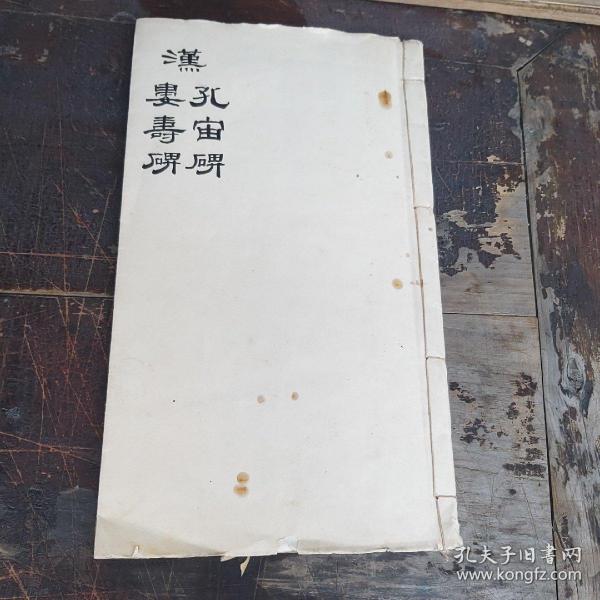 漢
孔宙碑
婁壽碑
孔夫子旧书网
www.kongfz.com